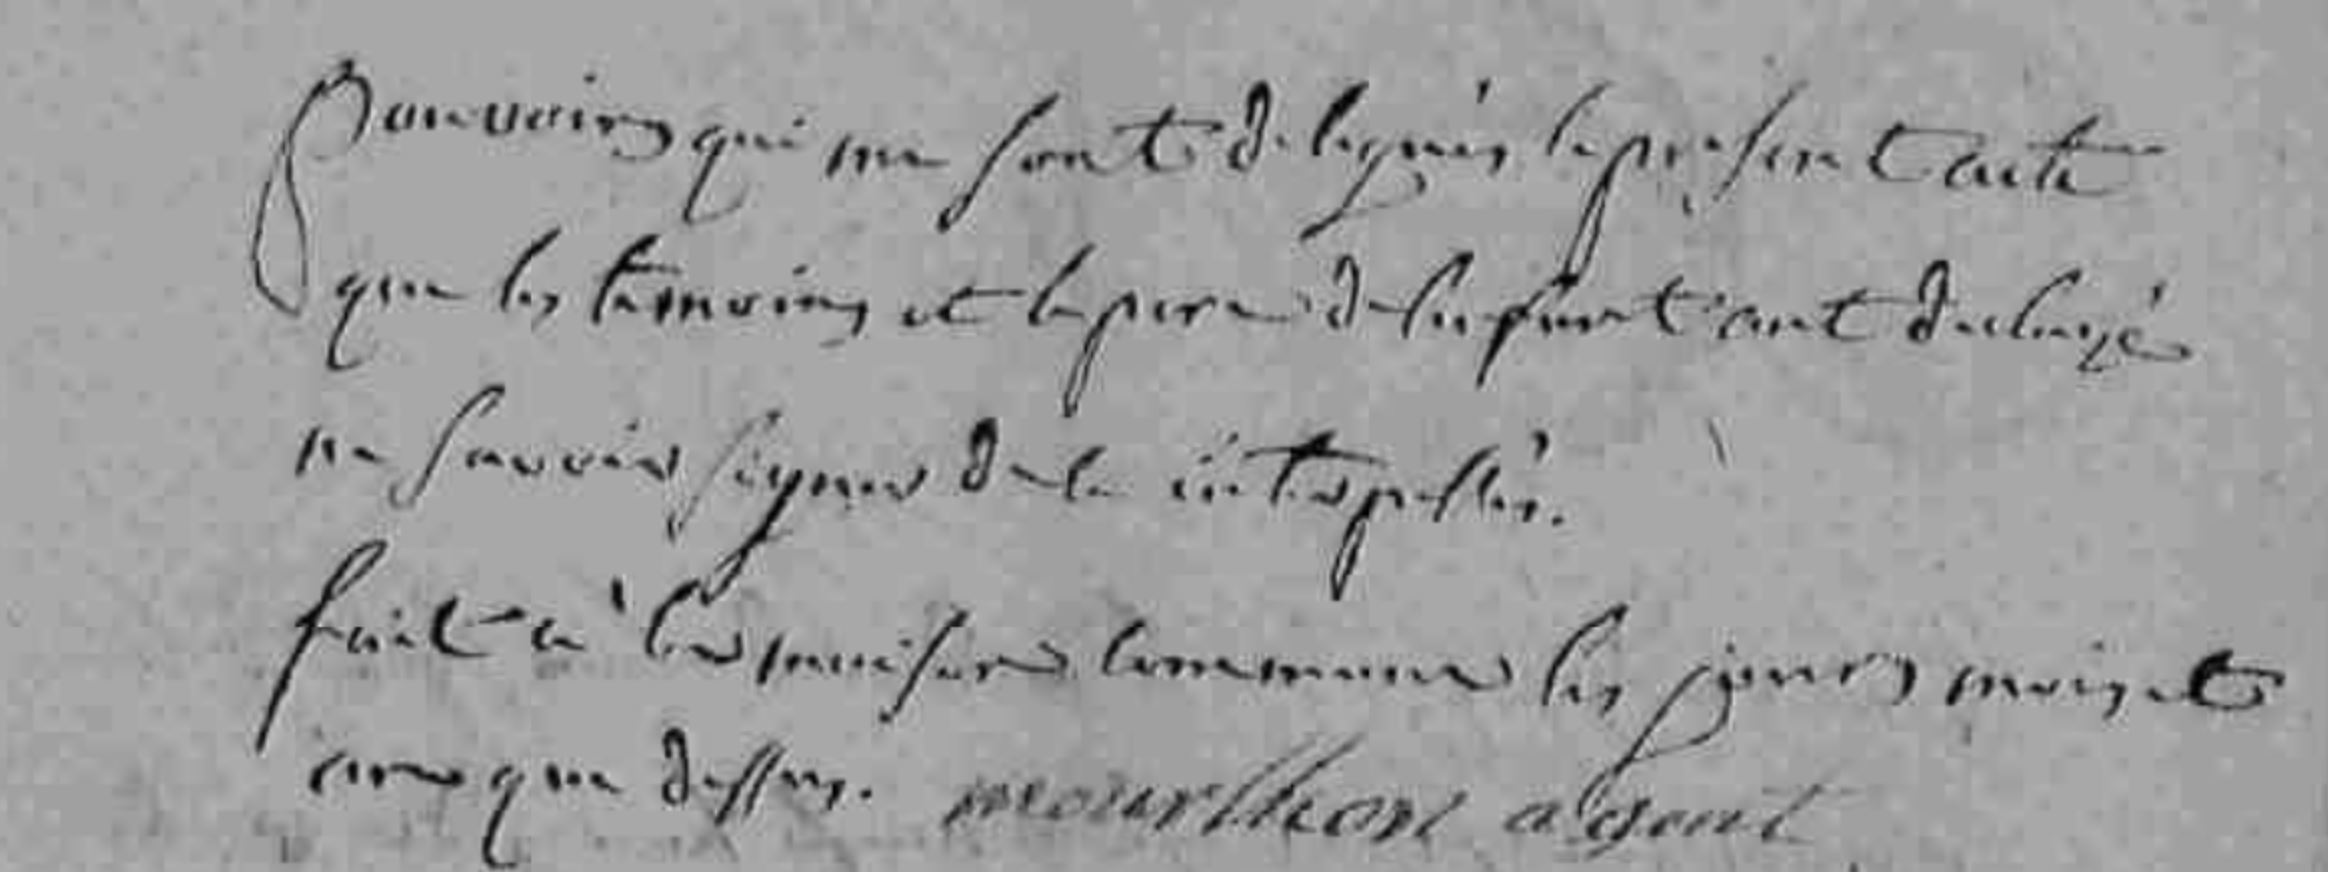 pouvoirs qui me sont delegués le present acte
que les temoins et le pere de lenfant ont declaré
ne savoir signer de ce interpellés.
fait a la maison commune les jours mois et
an que dessus. mourlhon agent